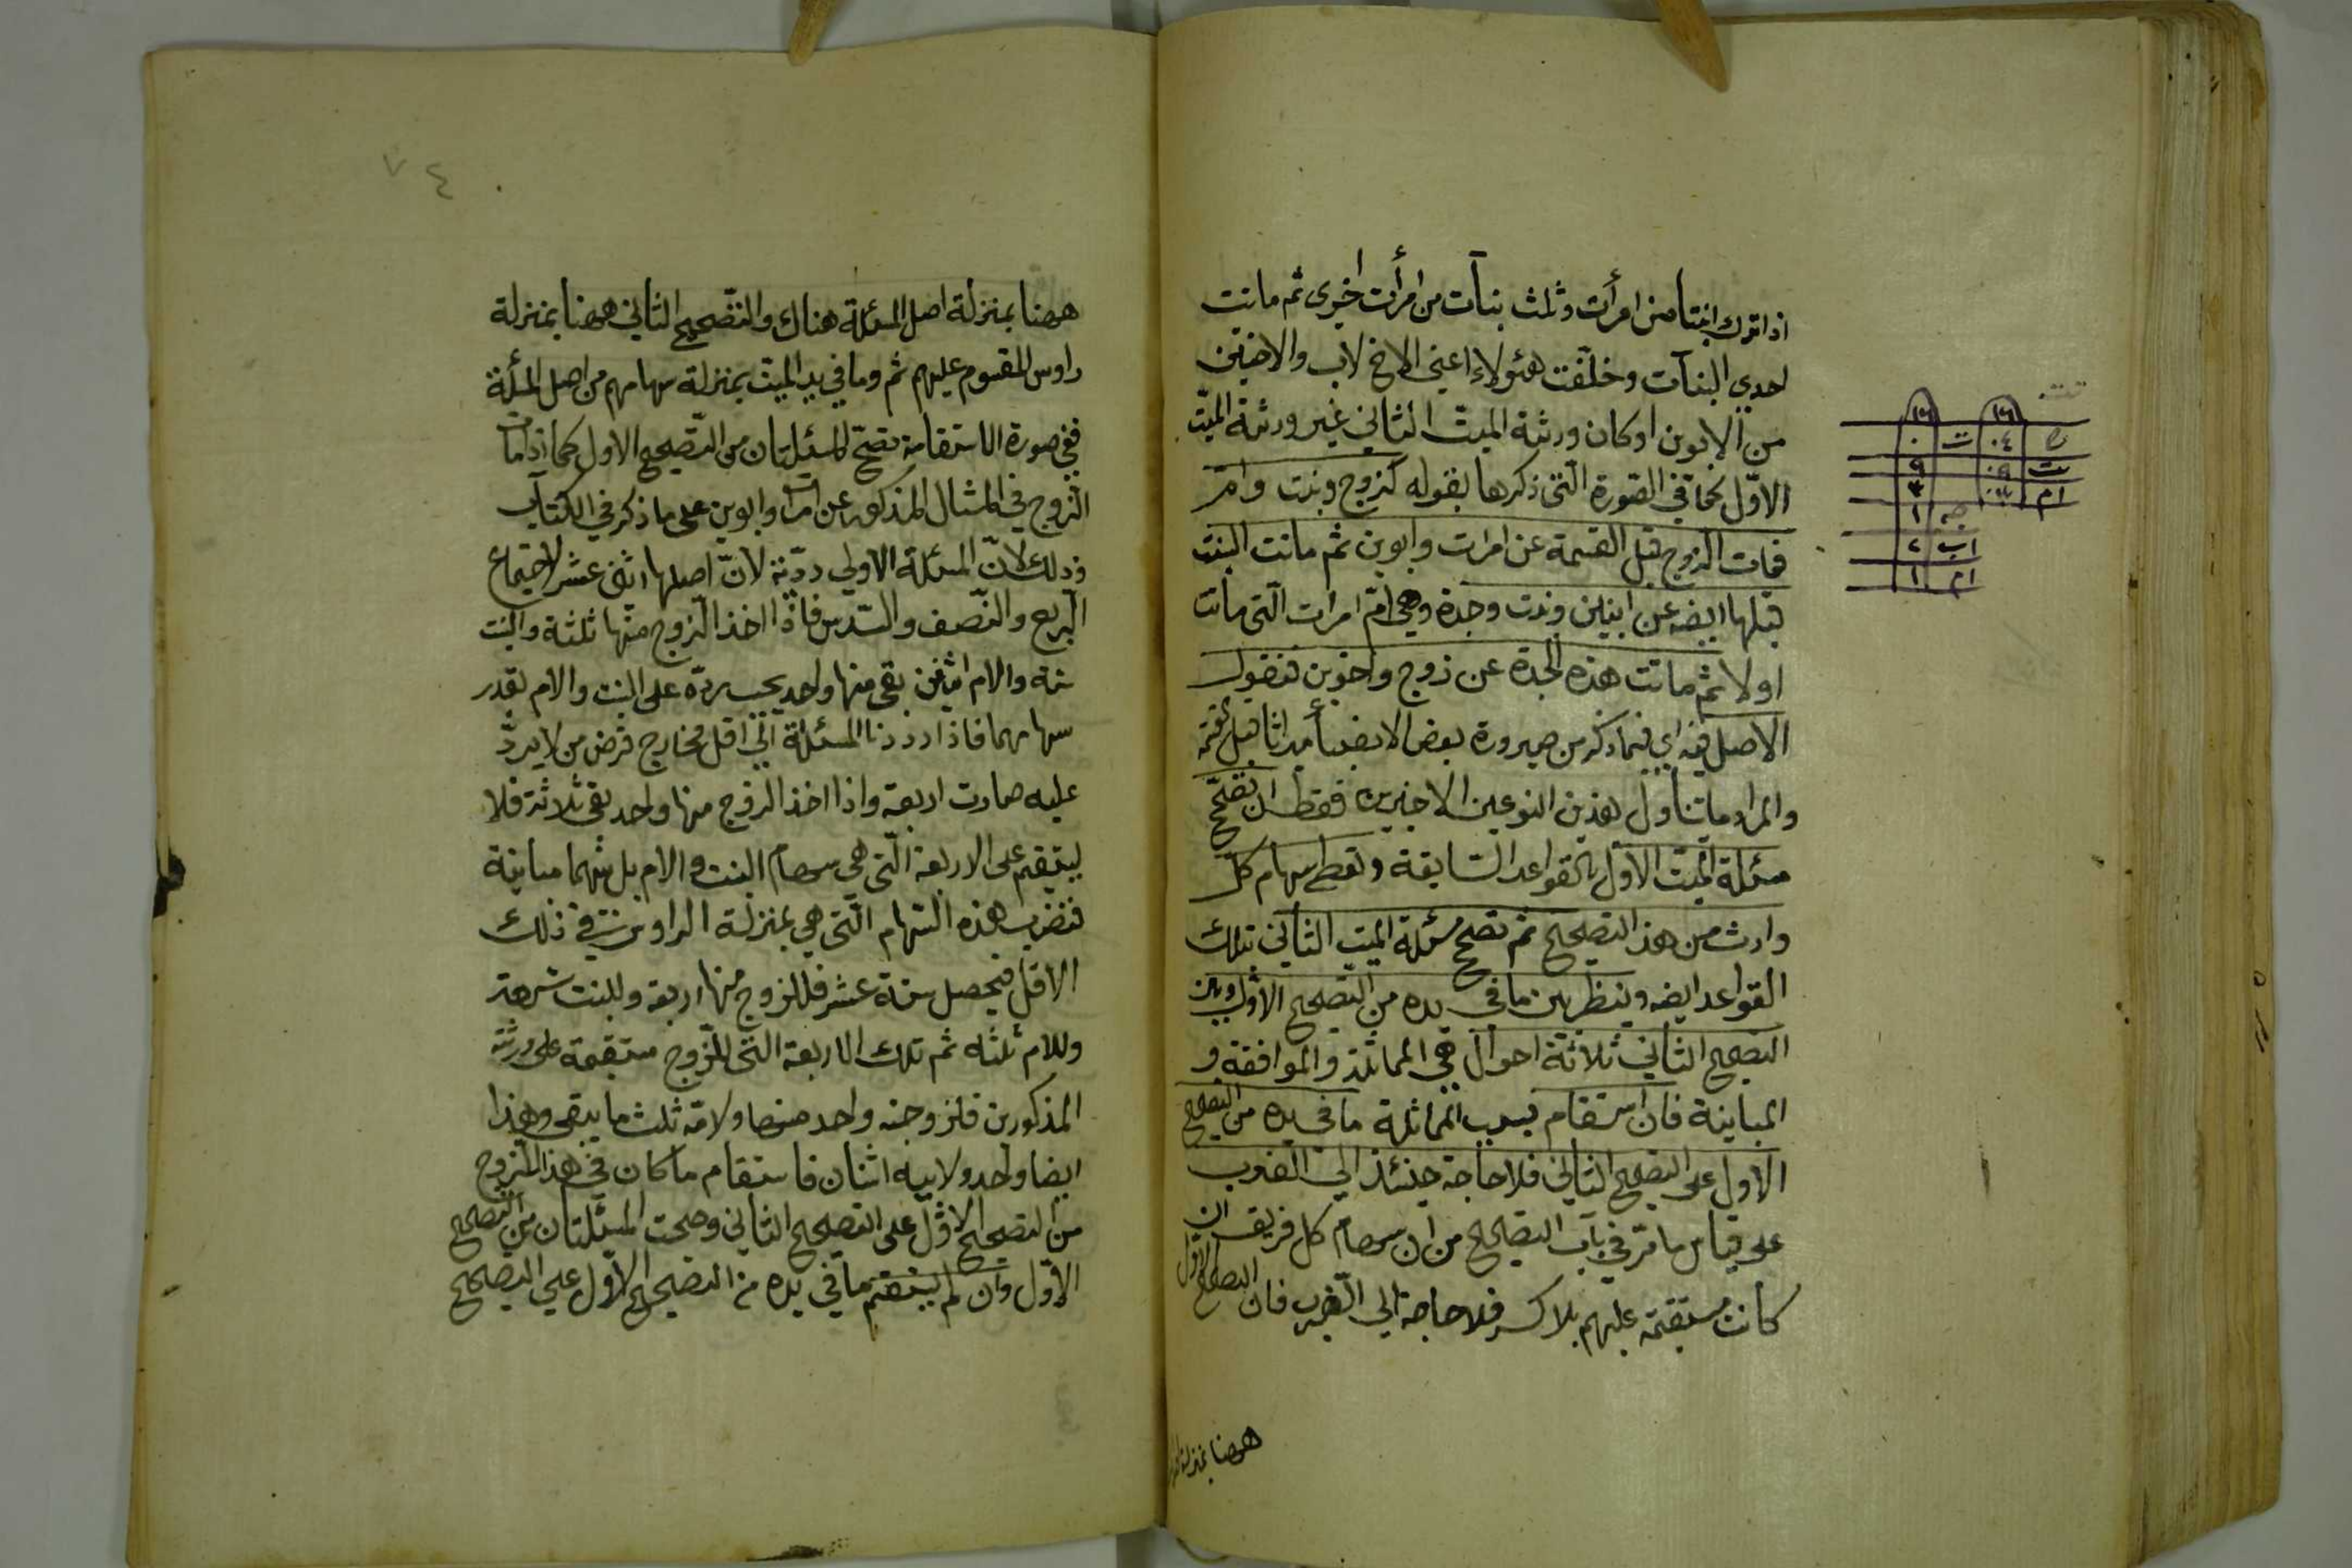 اذا ترك ابنتا من امرأت وثلث بنات من امرأت اخرى ثم ماتت
احدي البنات وخلفت هئولاء اعني الاخ لاب والاختين
من الابوين او كان ورثة الميت الثاني غير ورثة الميت
الاول كما في الصورة التي ذكرها بقوله كزوج وبنت وام
فمات الزوج قبل القسمة عن امرات وابوين ثم ماتت البنت
قبلها ايضه عن ابنين وبنت وجدة وهي ام امرات التي ماتت
اولا ثم ماتت هذه الجدة عن زوج واخوين فنقول
الاصل فيه اي فيما ذكر من صيرورة بعض الانصبأ ميراثا قبل القسمة
والمراد ما يتناول هذين النوعين الاخيرين فقط ان تصحح
مسئلة الميت الاول بالقواعد السابقة وتعطي سهام كل
وارث من هذا التصحيح ثم تصحح مسئلة الميت الثاني بتلك
القواعد ايضه وينظر بين ما في يده من التصحيح الاول وبين
التصحيح الثاني ثلاثة احوال هي المماثلة والموافقة و
المباينة فان استقام بسبب المماثلة ما في يده من التصحيح
الاول على التصحيح الثاني فلا حاجة حينئذ الي الضرب
على قياس ما مر في باب التصحيح من ان سهام كل فريق ان
كانت مستقيمة عليهم بلا كسر فلا حاجة الي الضرب فان التصحيح الاول
ههنا بمنزلة
١٦ ١٦
٤ ت ٠
بنت ٩ ٩
ام ٣ ٣
جه ١
اب ٢
ام ١
٧٤
ههنا بمنزلة اصل المسئلة هناك والتصحيح الثاني ههنا بمنزلة
راوس المقسوم عليهم ثم وما في يد الميت بمنزلة سهامهم من اصل المسألة
ففي صورة الاستقامة تصح المسئلتان من التصحيح الاول كما اذا مات
الزوج في المثال المذكور عن امرات وابوين على ما ذكر في الكتاب
وذلك لان المسئلة الاولي ردية لان اصلها اثني عشر لاجتماع
الربع والنصف والسدس فاذا اخذ الزوج منها ثلثة والبنت
ستة والام اثنين بقي منها واحد يجب رده على البنت والام بقدر
سهامهما فاذا رددنا المسئلة الي اقل مخارج فرض من لا يرد
عليه صارت اربعة واذا اخذ الزوج منها واحد بقي ثلاثة فلا
يستقيم على الاربعة التي هي سهام البنت والام بل بينهما مباينة
فنضرب هذه السهام التي هي بمنزلة الراوس في ذلك
الاقل فيحصل ستة عشر فللزوج منها اربعة وللبنت تسعة
وللام ثلثه ثم تلك الاربعة التي للزوج مستقيمة على ورثته
المذكورين فلزوجته واحد منها ولامه ثلث ما يبقى وهذا
ايضا واحد ولابيه اثنان فاستقام ما كان في هذا الزوج
من التصحيح الاول على التصحيح الثاني وصحت المسئلتان من التصحيح
الاول وان لم يستقم ما في يده من التصحيح الاول علي التصحيح